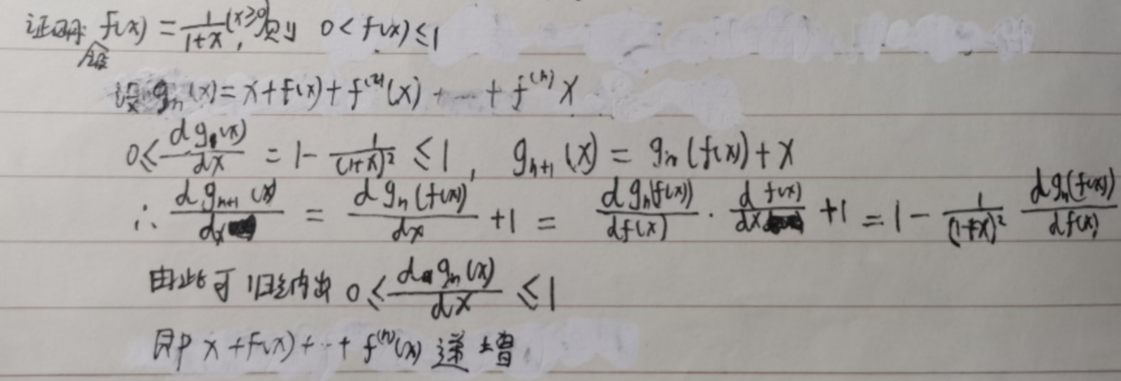 证明: f(x) = 1/(1+x) (x≥0), 则 0 < f(x) ≤ 1
设 gₙ(x) = x + f(x) + f⁽²⁾(x) + … + f⁽ⁿ⁾x
0 ≤ dg₁(x)/dx = 1 - 1/(1+x)² ≤ 1, gₙ₊₁(x) = gₙ(f(x)) + x
∴ dgₙ₊₁(x)/dx = dgₙ(f(x))/dx + 1 = dgₙ(f(x))/df(x) · d f(x)/dx + 1 = 1 - 1/(1+x)² dgₙ(f(x))/df(x)
由此可归纳出 0 ≤ dgₙ(x)/dx ≤ 1
即 x + f(x) + … + f⁽ⁿ⁾(x) 递增